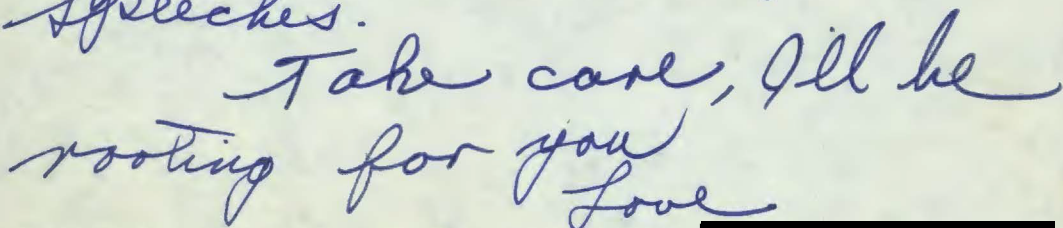 speeches.
Take care, I'll be
rooting for you
Love